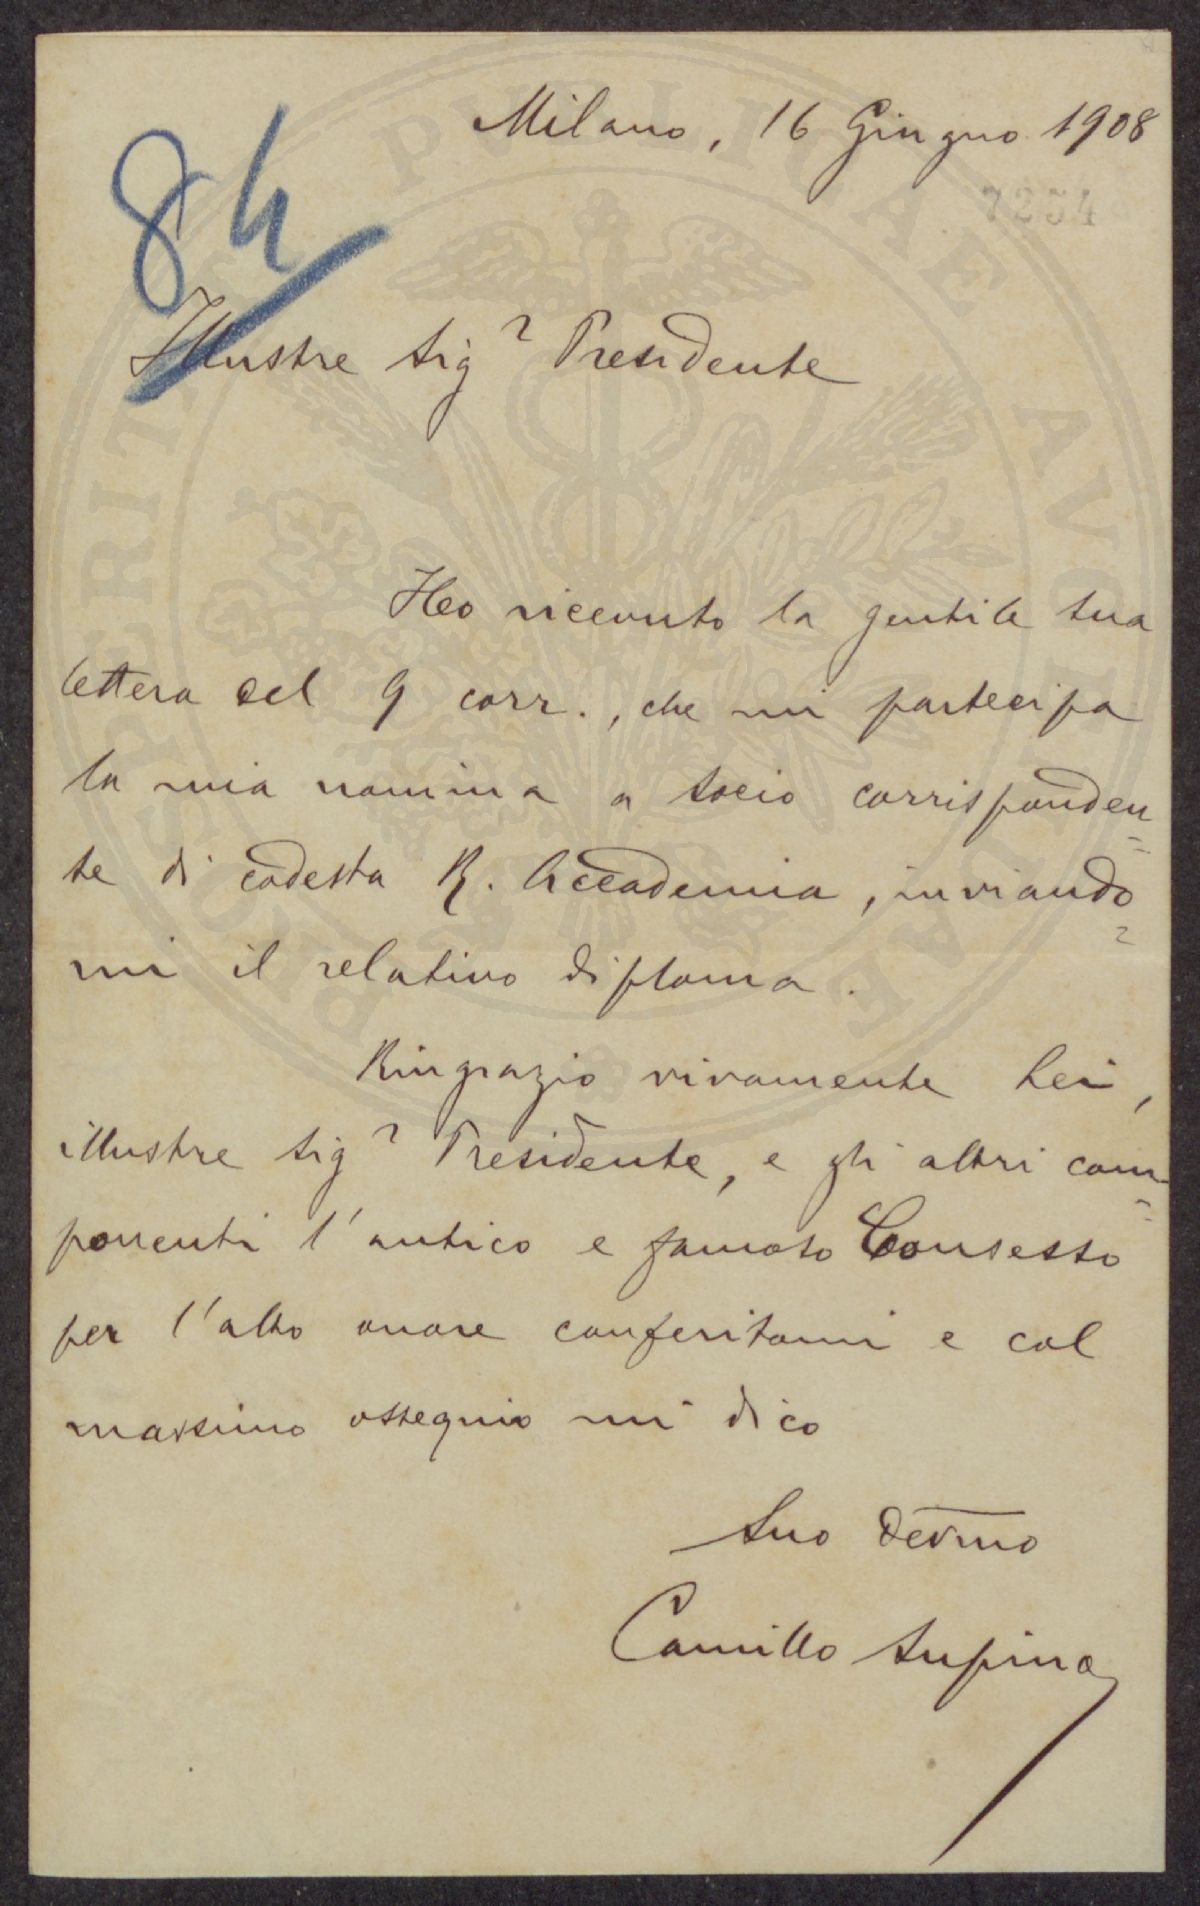 Milano, 16 Giugno 1908
7254
84
Illustre Sigr Presidente
Ho ricevuto la gentile sua
lettera del 9 corr., che mi partecipa
la mia nomina a socio corrisponden=
te di codesta R. Accademia, inviando=
mi il relativo diploma.
Ringrazio vivamente Lei,
illustre Sigr Presidente, e gli altri com=
ponenti l'antico e famoso Consesso
per l'alto onore conferitomi e col
massimo ossequio mi dico
Suo Devmo
Camillo Supino